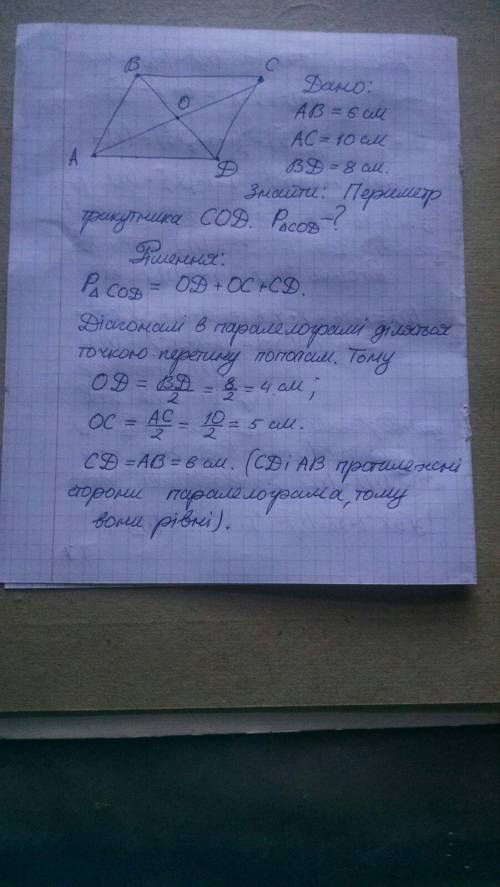 B
C
O
A
D
Дано:
AB = 6 см
AC = 10 см
BD = 8 см.
Знайти: Периметр
трикутника COD. P△COD -?
Рішення:
P△COD = OD + OC + CD.
Діагоналі в паралелограмі діляться
точкою перетину пополам. Тому
OD = BD/2 = 8/2 = 4 см;
OC = AC/2 = 10/2 = 5 см.
CD = AB = 6 см. (CD і AB протилежні
сторони паралелограма, тому
вони рівні).